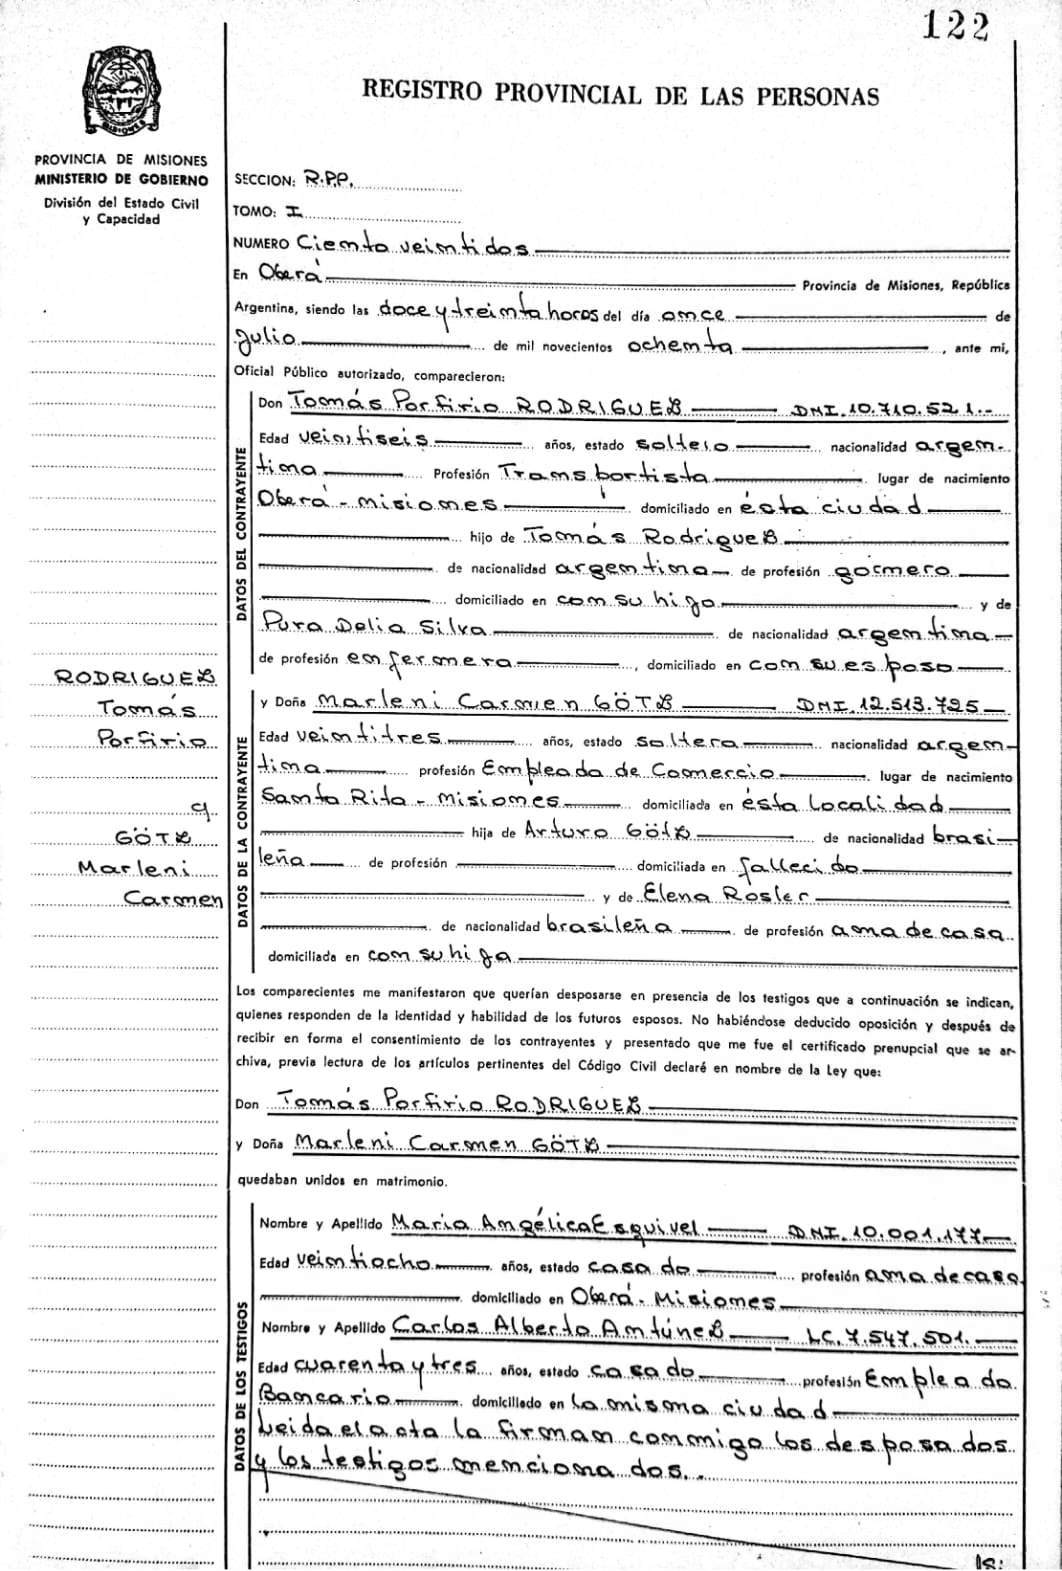 122
REGISTRO PROVINCIAL DE LAS PERSONAS
PROVINCIA DE MISIONES
MINISTERIO DE GOBIERNO
División del Estado Civil
y Capacidad
SECCION: R.P.P.
TOMO: I
NUMERO Ciento veintidos
En Oberá Provincia de Misiones, República
Argentina, siendo las doce y treinta horas del día once de
Julio de mil novecientos ochenta, ante mi,
Oficial Público autorizado, comparecieron:
DATOS DEL CONTRAYENTE
Don Tomás Porfirio RODRIGUEZ DNI. 10.710.521.-
Edad veintiseis años, estado soltero nacionalidad argen-
tina Profesión Transportista lugar de nacimiento
Oberá - Misiones domiciliado en ésta ciudad
hijo de Tomás Rodriguez
de nacionalidad argentina de profesión gomero
domiciliado en con su hijo y de
Pura Delia Silva de nacionalidad argentina
de profesión enfermera, domiciliado en con su esposo
RODRIGUEZ
Tomás
Porfirio
c/
GÖTZ
Marleni
Carmen
DATOS DE LA CONTRAYENTE
y Doña Marleni Carmen GÖTZ DNI. 12.513.725
Edad veintitres años, estado soltera nacionalidad argen-
tina profesión Empleada de Comercio lugar de nacimiento
Santa Rita - Misiones domiciliada en ésta Localidad
hija de Arturo Götz de nacionalidad brasi-
leña de profesión domiciliada en fallecido
y de Elena Rosler
de nacionalidad brasileña de profesión ama de casa
domiciliada en con su hija
Los comparecientes me manifestaron que querían desposarse en presencia de los testigos que a continuación se indican,
quienes responden de la identidad y habilidad de los futuros esposos. No habiéndose deducido oposición y después de
recibir en forma el consentimiento de los contrayentes y presentado que me fue el certificado prenupcial que se ar-
chiva, previa lectura de los artículos pertinentes del Código Civil declaré en nombre de la Ley que:
Don Tomás Porfirio RODRIGUEZ
y Doña Marleni Carmen GÖTZ
quedaban unidos en matrimonio.
DATOS DE LOS TESTIGOS
Nombre y Apellido Maria Angélica Esquivel DNI. 10.001.177
Edad veintiocho años, estado casado profesión ama de casa
domiciliado en Oberá - Misiones
Nombre y Apellido Carlos Alberto Antúnez LC. 7.547.501.
Edad cuarenta y tres años, estado casado profesión Empleado
Bancario domiciliado en la misma ciudad
Leida el acta la firman conmigo los desposados
y los testigos mencionados.